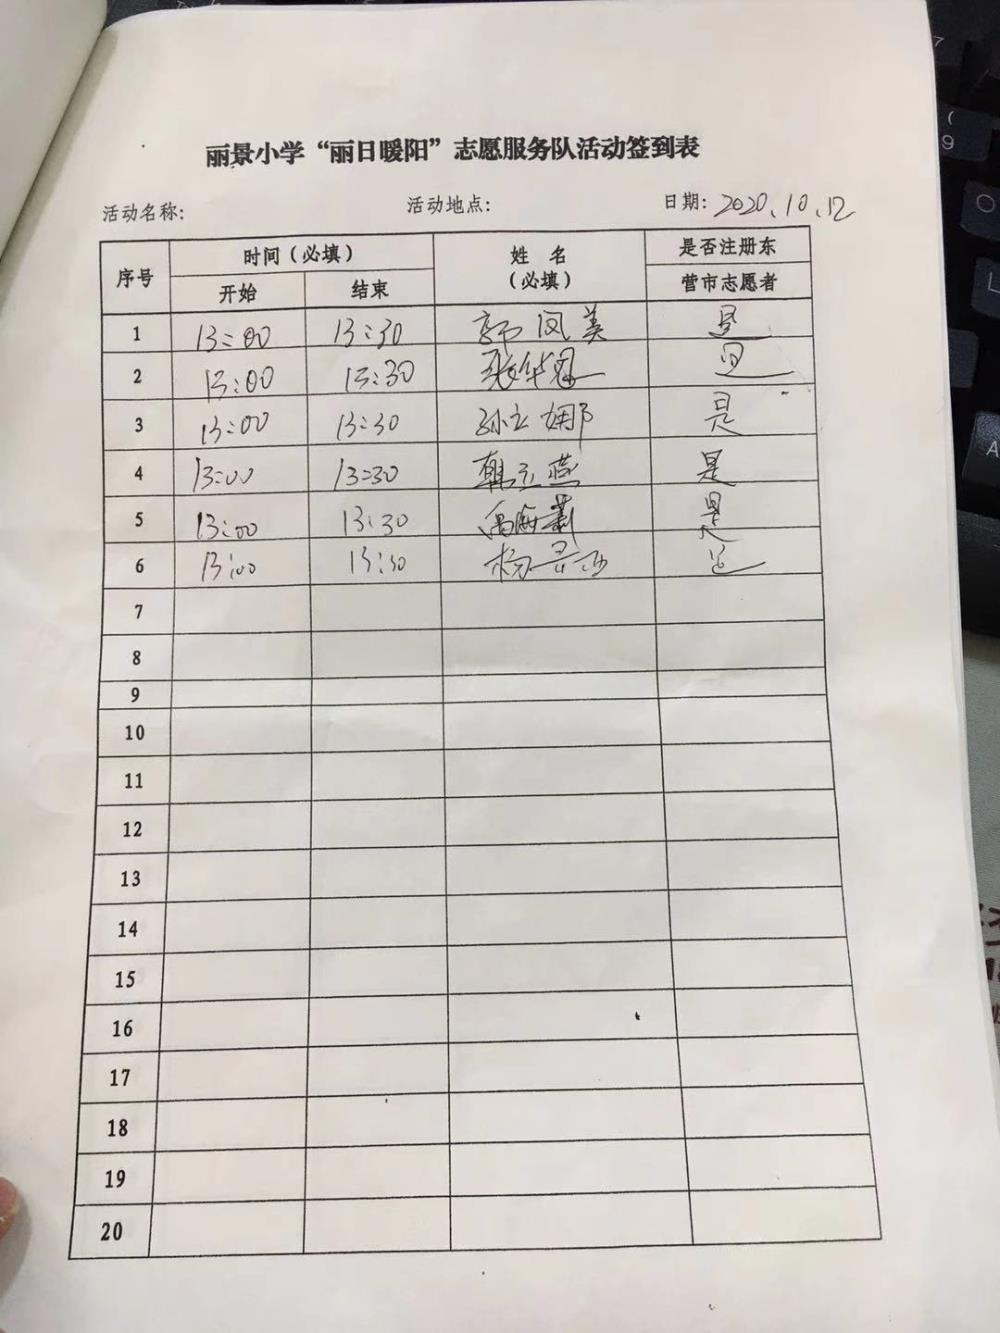 丽景小学“丽日暖阳”志愿服务队活动签到表
活动名称: 活动地点: 日期: 2020.10.12
序号 时间(必填) 姓 名 (必填) 是否注册东营市志愿者
开始 结束
1 13:00 13:30 郭凤美 是
2 13:00 13:30 张华 是
3 13:00 13:30 孙立娜 是
4 13:00 13:30 韩立燕 是
5 13:00 13:30 是
6 13:00 13:30 杨 是
7
8
9
10
11
12
13
14
15
16
17
18
19
20